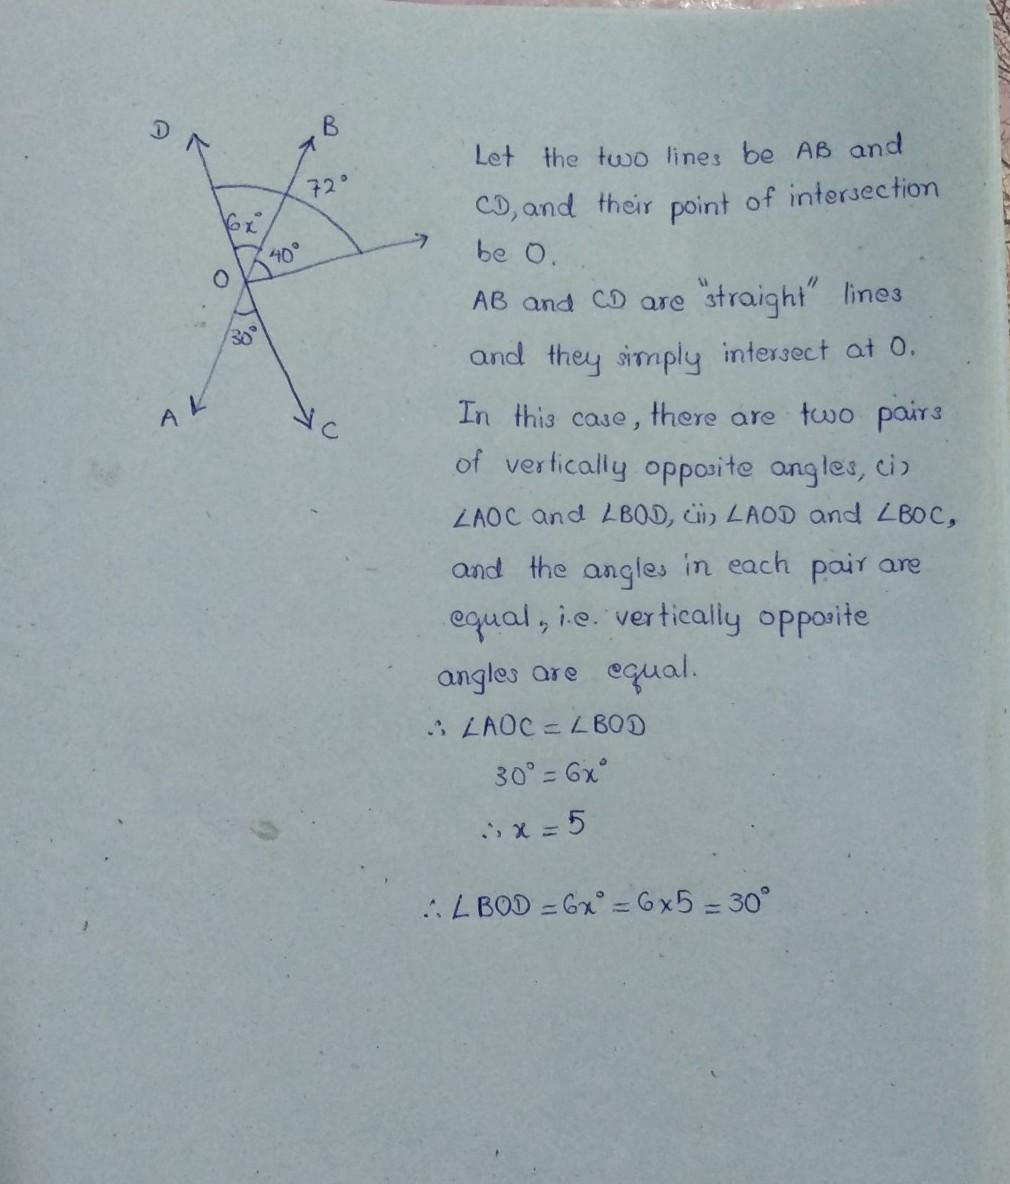 D
B
72°
6x°
40°
O
30°
A
C
Let the two lines be AB and
CD, and their point of intersection
be O.
AB and CD are "straight" lines
and they simply intersect at O.
In this case, there are two pairs
of vertically opposite angles, (i)
∠AOC and ∠BOD, (ii) ∠AOD and ∠BOC,
and the angles in each pair are
equal, i.e. vertically opposite
angles are equal.
∴ ∠AOC = ∠BOD
30° = 6x°
∴ x = 5
∴ ∠BOD = 6x° = 6x5 = 30°